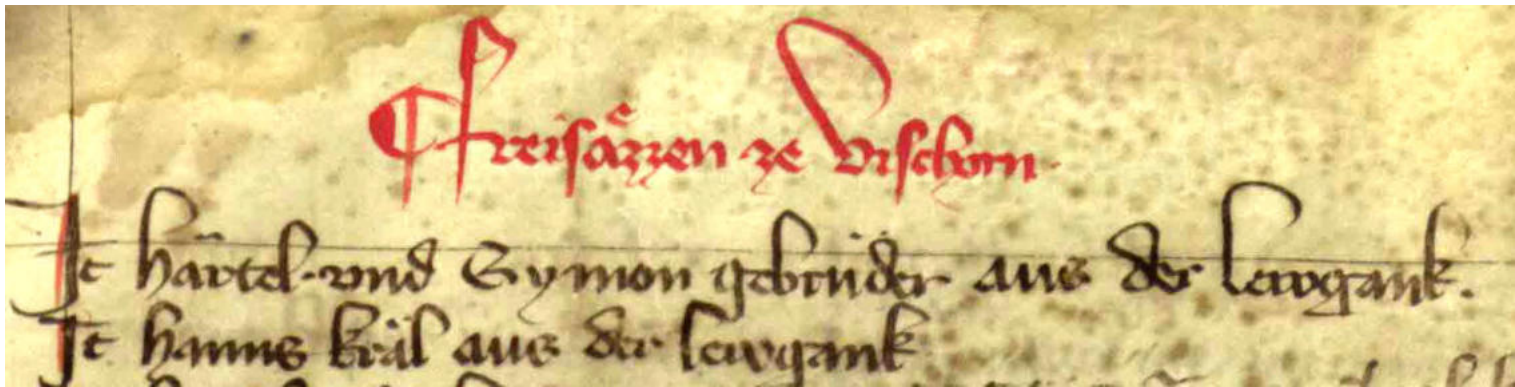 ¶ freisäzzen ze vischorn
It härtel vnd Symon gebrüder aus der lewgank.
It hanns kräl aus der lewgank